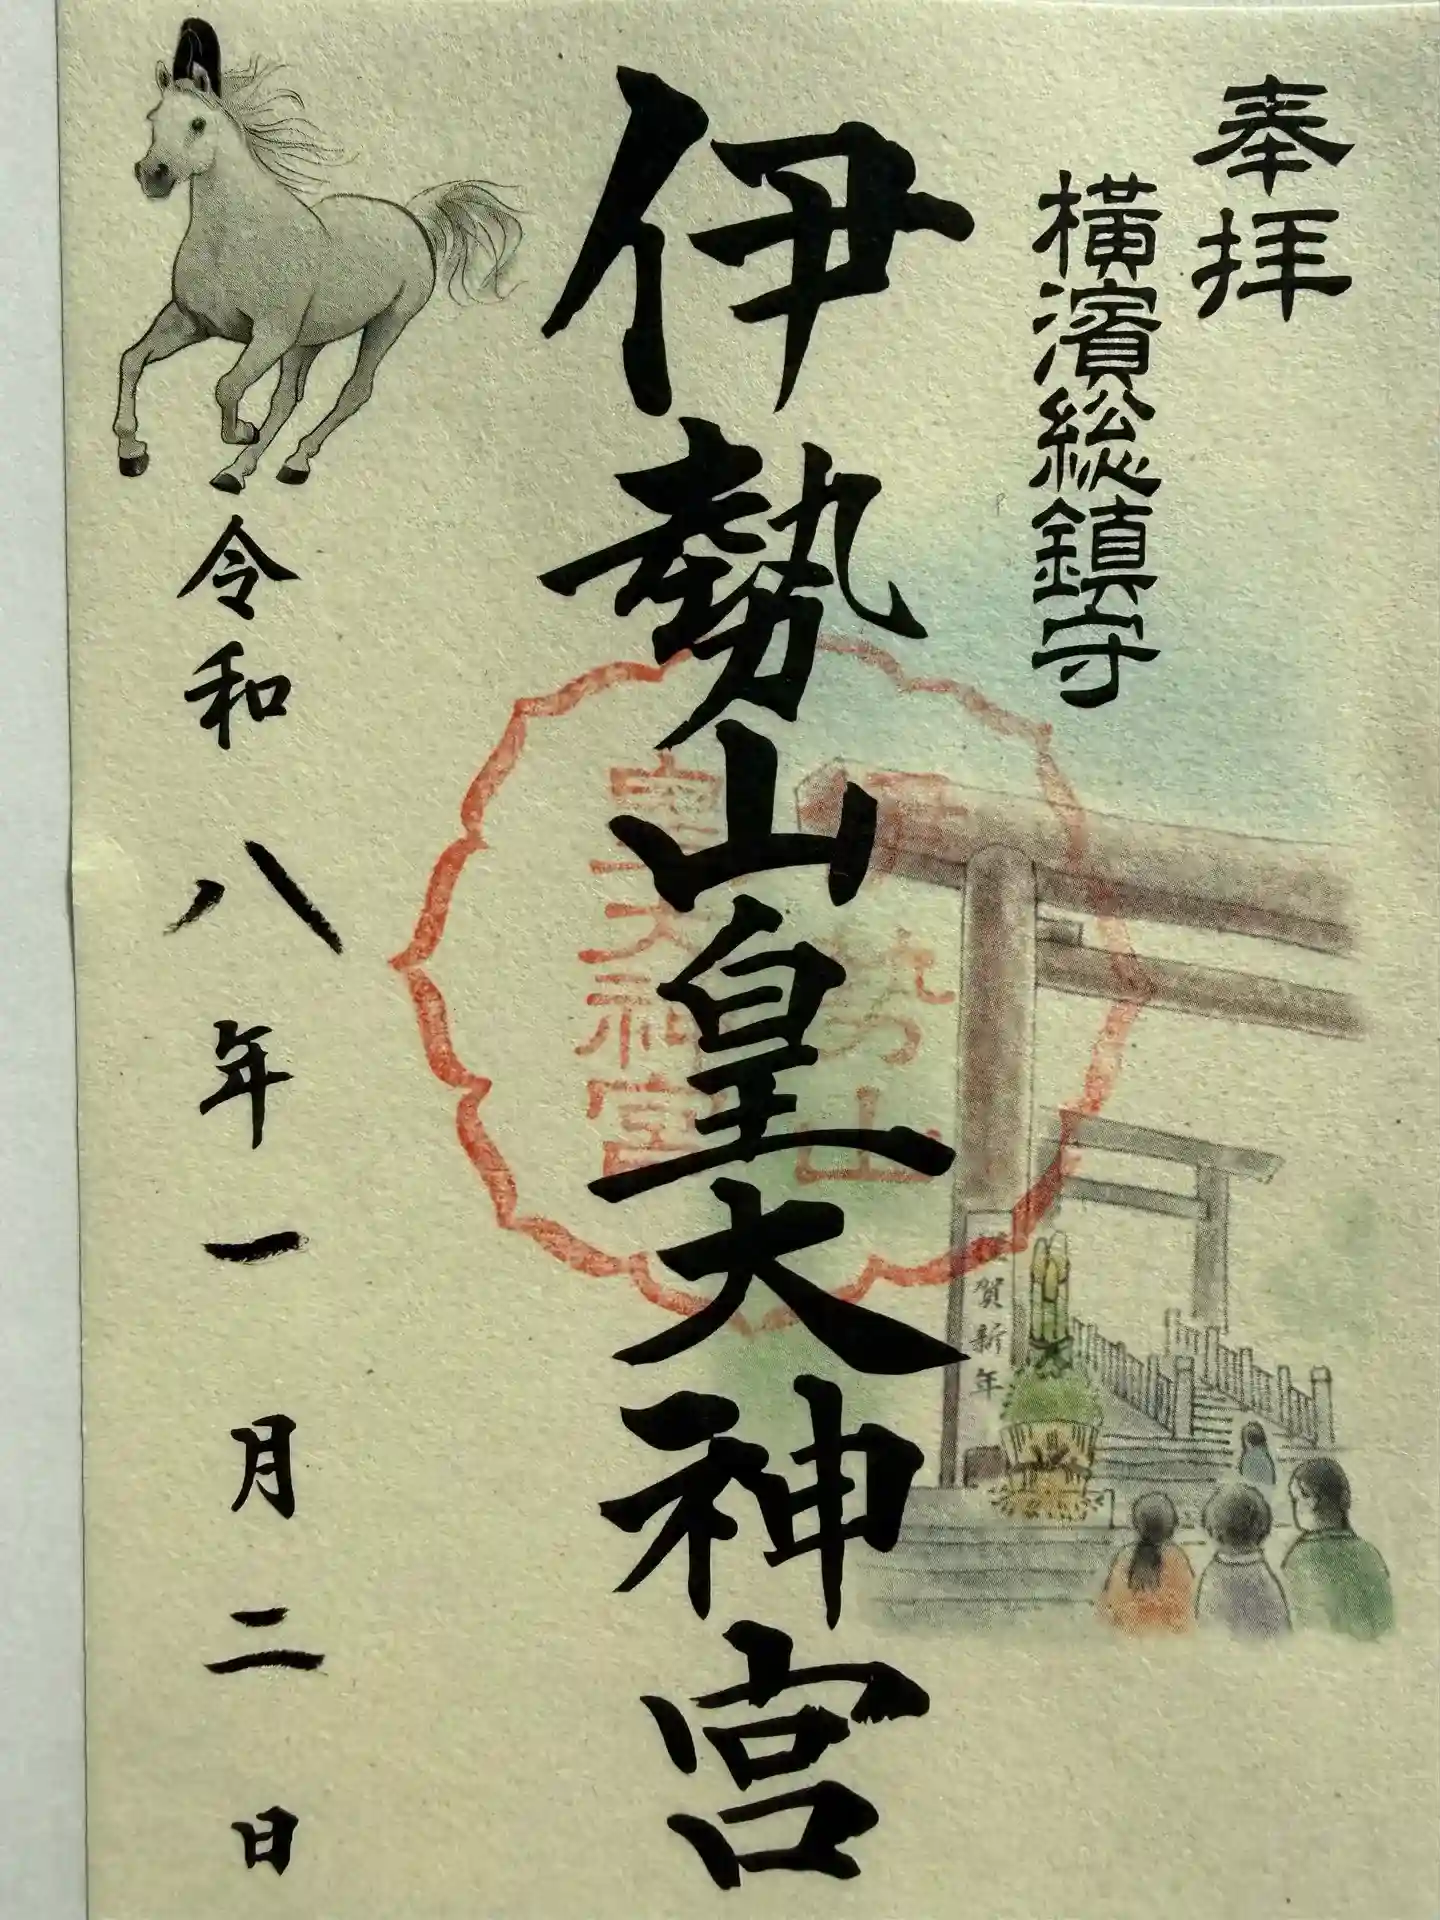 奉拝
横濱総鎮守
伊勢山皇大神宮
伊勢山
皇大神宮
賀新年
令和八年一月二日